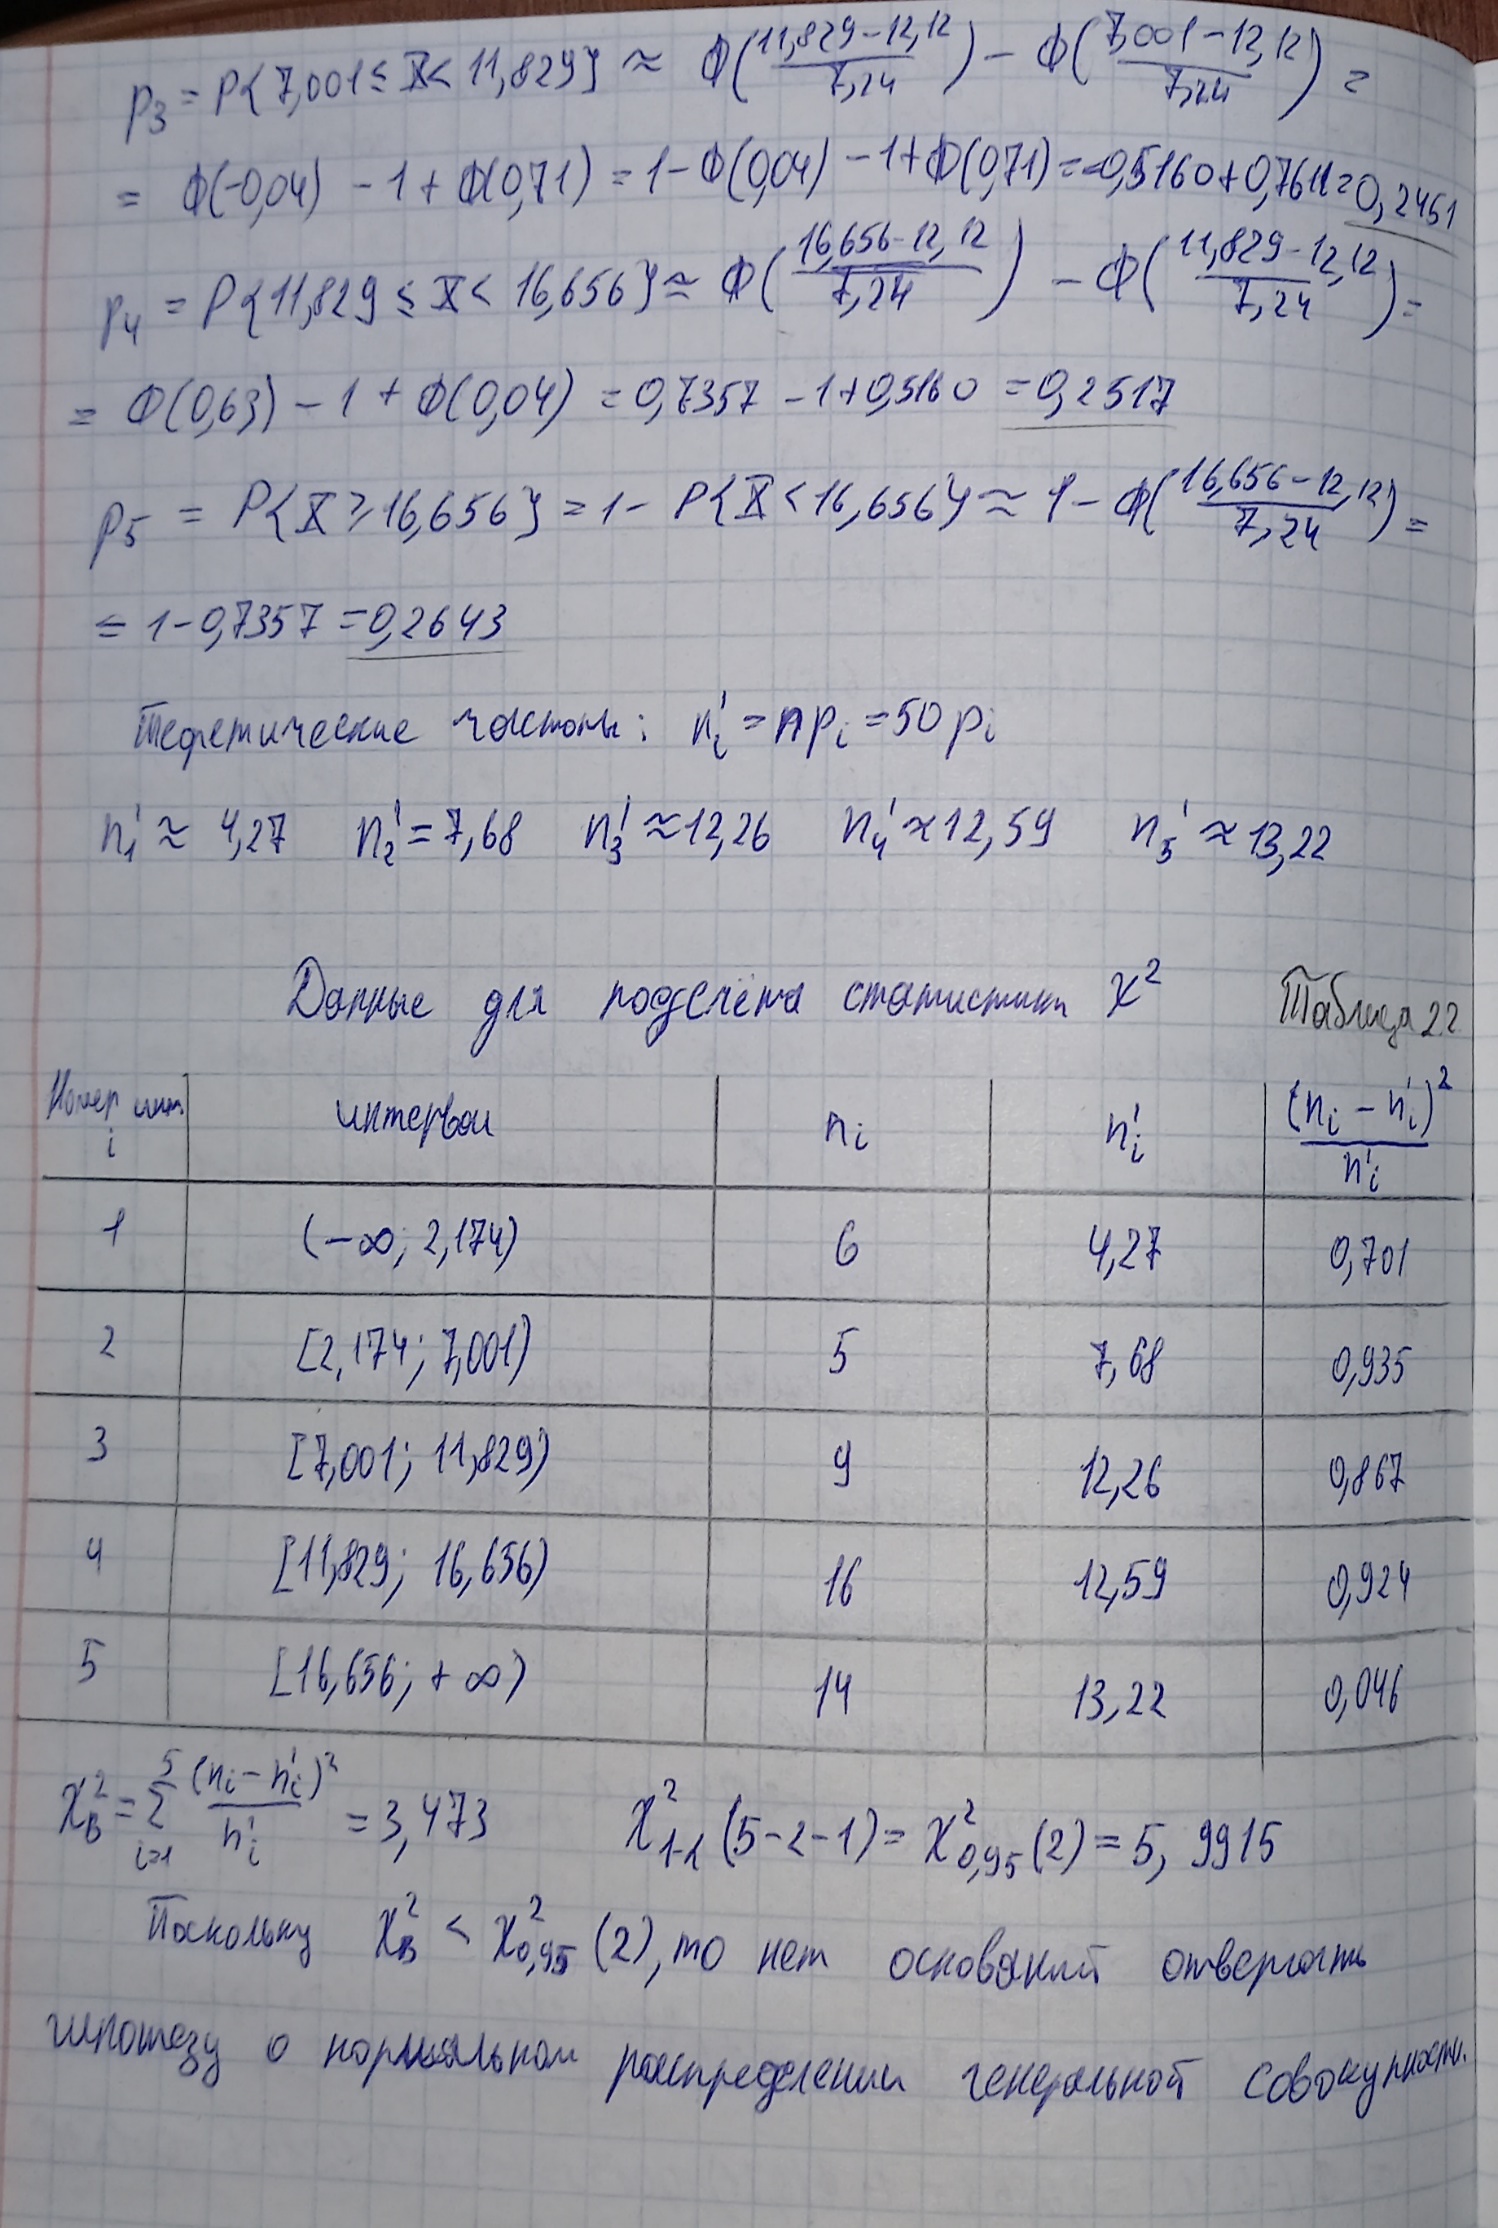 p₃ = P{7,001 ≤ X < 11,829} ≈ Φ((11,829-12,12)/7,24) - Φ((7,001-12,12)/7,24) =
= Φ(-0,04) - 1 + Φ(0,71) = 1 - Φ(0,04) - 1 + Φ(0,71) = -0,5160 + 0,7611 = 0,2451
p₄ = P{11,829 ≤ X < 16,656} ≈ Φ((16,656-12,12)/7,24) - Φ((11,829-12,12)/7,24) =
= Φ(0,63) - 1 + Φ(0,04) = 0,7357 - 1 + 0,5160 = 0,2517
p₅ = P{X ≥ 16,656} = 1 - P{X < 16,656} ≈ 1 - Φ((16,656-12,12)/7,24) =
= 1 - 0,7357 = 0,2643
Теоретические частоты: nᵢ' = npᵢ = 50pᵢ
n₁' ≈ 4,27 n₂' = 7,68 n₃' ≈ 12,26 n₄' ≈ 12,59 n₅' ≈ 13,22
Данные для подсчёта статистики χ² Таблица 2.2
Номер инт. i интервал nᵢ nᵢ' (nᵢ - nᵢ')²/nᵢ'
1 (-∞; 2,174) 6 4,27 0,701
2 [2,174; 7,001) 5 7,68 0,935
3 [7,001; 11,829) 9 12,26 0,867
4 [11,829; 16,656) 16 12,59 0,924
5 [16,656; +∞) 14 13,22 0,046
χ²_В = Σ_{i=1}^{5} (nᵢ - nᵢ')²/nᵢ' = 3,473 χ²_{1-α}(5-2-1) = χ²_{0,95}(2) = 5,9915
Поскольку χ²_В < χ²_{0,95}(2), то нет оснований отвергать
гипотезу о нормальном распределении генеральной совокупности.